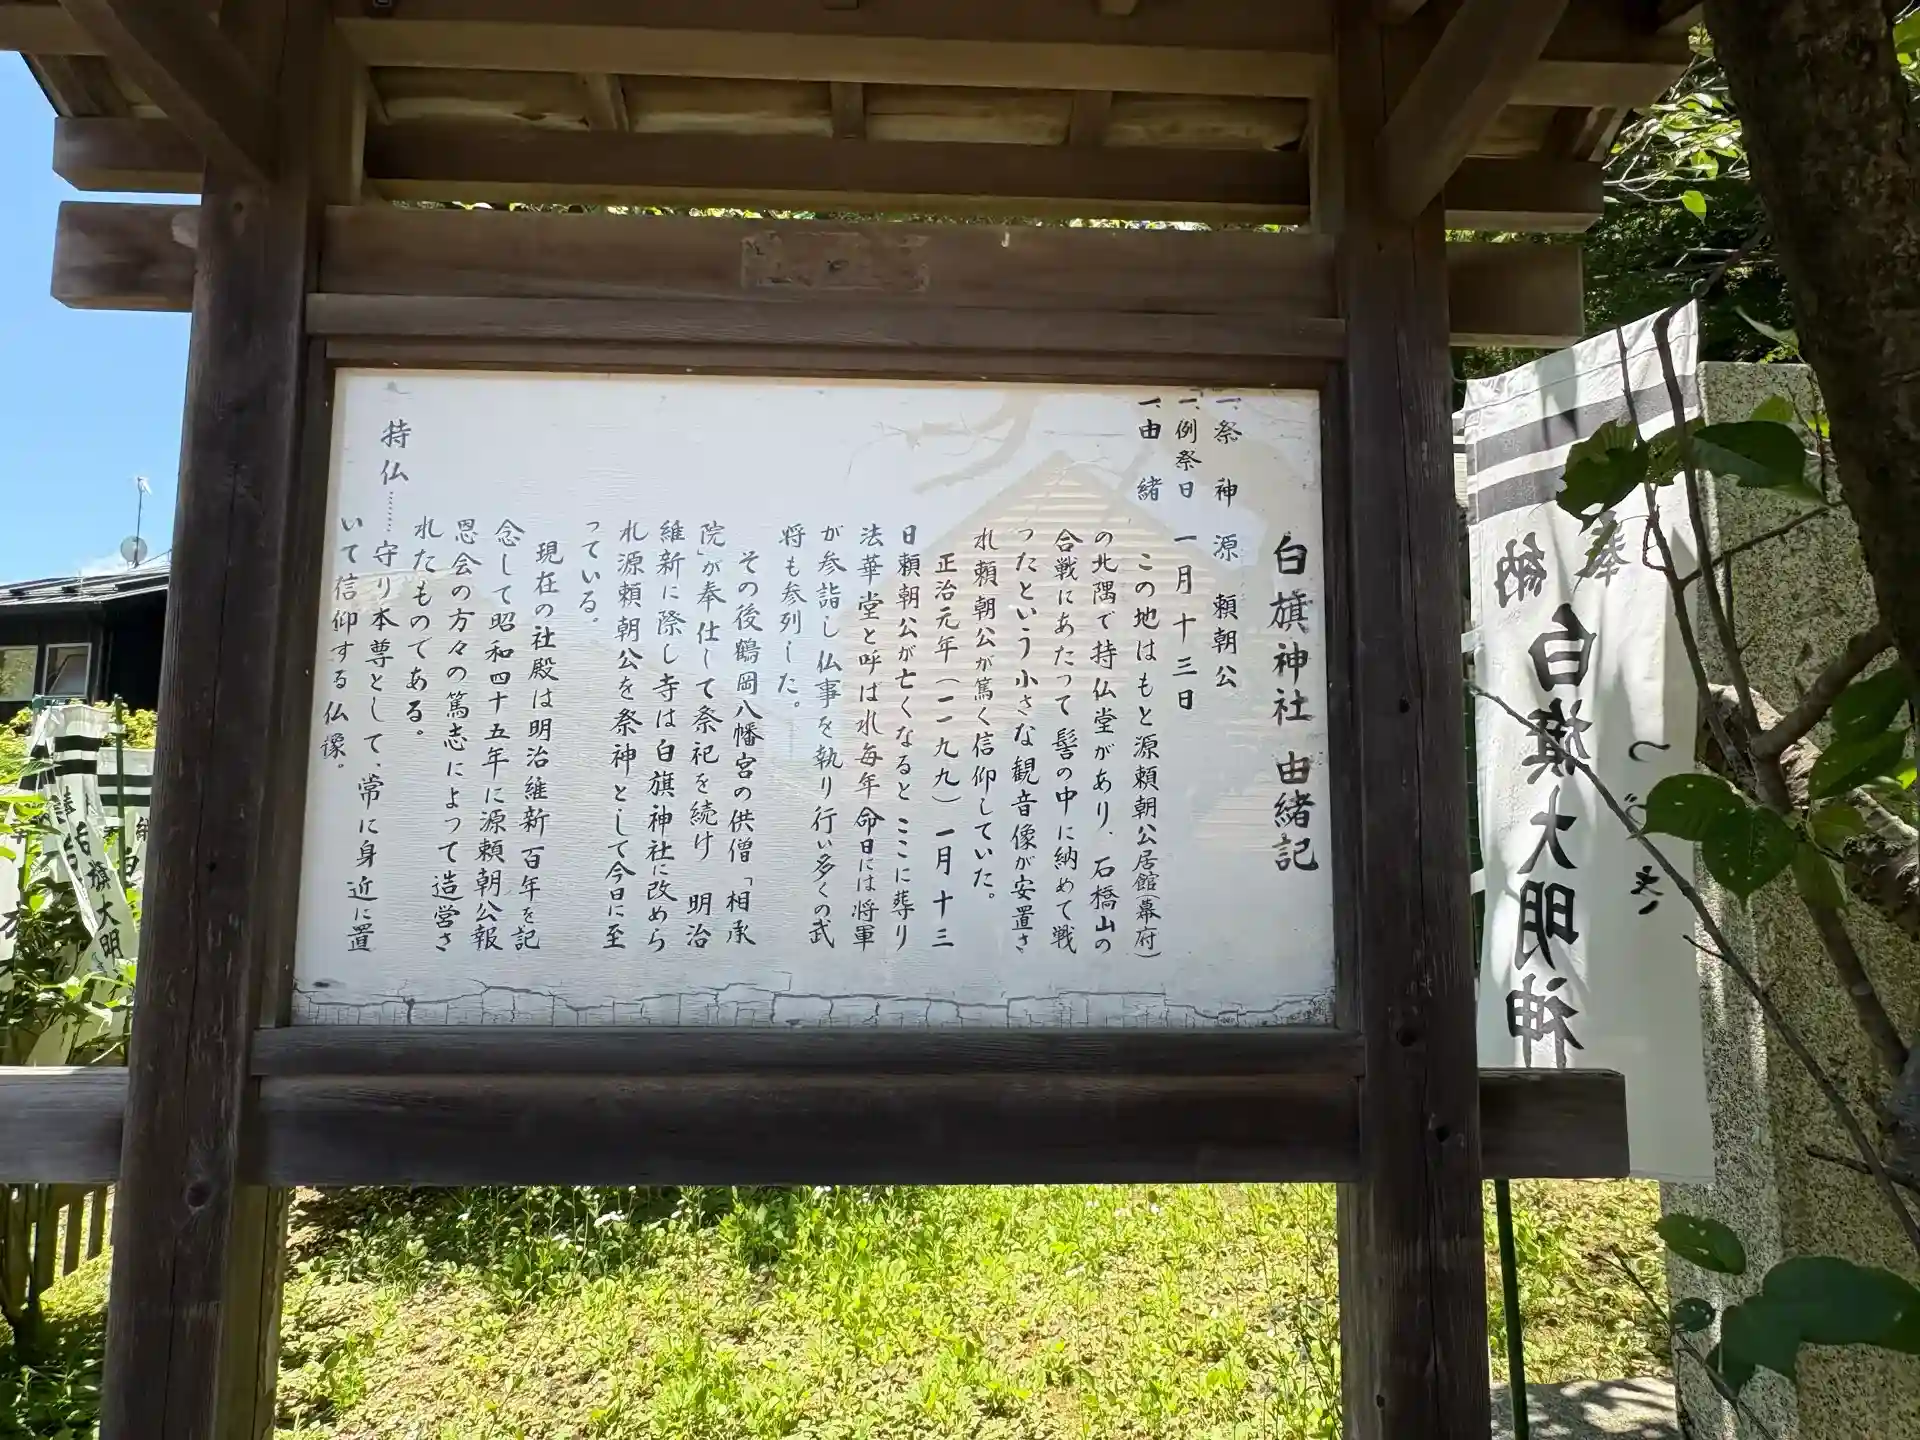 白旗神社 由緒記
一、祭神 源 頼朝公
一、例祭日 一月十三日
一、由緒
この地はもと源頼朝公居館(幕府)
の北隅で持仏堂があり、石橋山の
合戦にあたって髻の中に納めて戦
ったという小さな観音像が安置さ
れ頼朝公が篤く信仰していた。
正治元年(一一九九)一月十三
日頼朝公が亡くなるとここに葬り
法華堂と呼ばれ毎年命日には将軍
が参詣し仏事を執り行い多くの武
将も参列した。
その後鶴岡八幡宮の供僧「相承
院」が奉仕して祭祀を続け 明治
維新に際し寺は白旗神社に改めら
れ源頼朝公を祭神として今日に至
っている。
現在の社殿は明治維新百年を記
念して昭和四十五年に源頼朝公報
恩会の方々の篤志によって造営さ
れたものである。
持仏……守り本尊として、常に身近に置
いて信仰する仏像。
奉納
白旗大明神
白旗大明